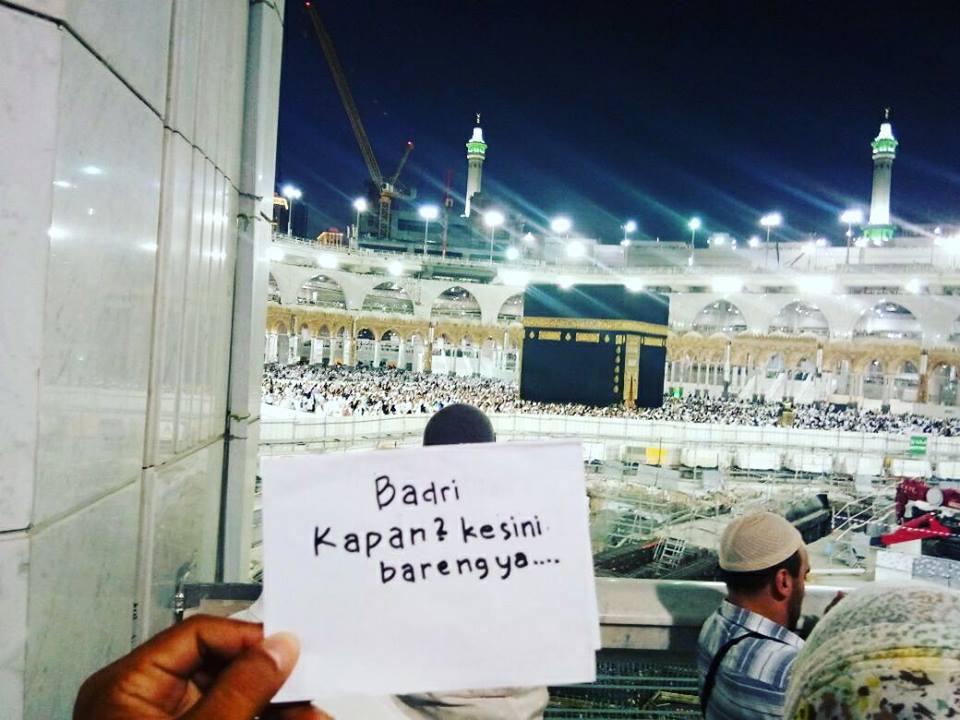 Badri
Kapan? kesini
bareng ya....